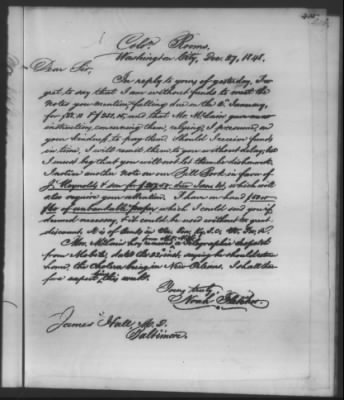 Col. Rooms,
Washington City, Dec. 27, 1848.
Dear Sir,
In reply to yours of yesterday, I re-
gret to say, that I am without funds to meet the
notes you mention falling due on the 6th January,
for and that Mr. McLain gave me no
instruction, concerning them, relying, I presumed, on
your kindness to pay them. Should I receive funds
in time, I will remit them to you without delay, but
I must beg that you will not let them be dishonored.
I notice another note on our Bill Book in favor of
J. Reynolds & Son for due Jan. 21, which will
also require your attention. I have on hand
which I could send you if
deemed necessary, & it could be used without a great
discount.
Mr. McLain has a Telegraphic despatch
from Mobile, dated the 22d inst, saying he should return
home, the Cholera being in New Orleans. I shall there
fore expect him this week.
Yours truly,
Noah Fletcher.
James Hall, M. D.
Baltimore.